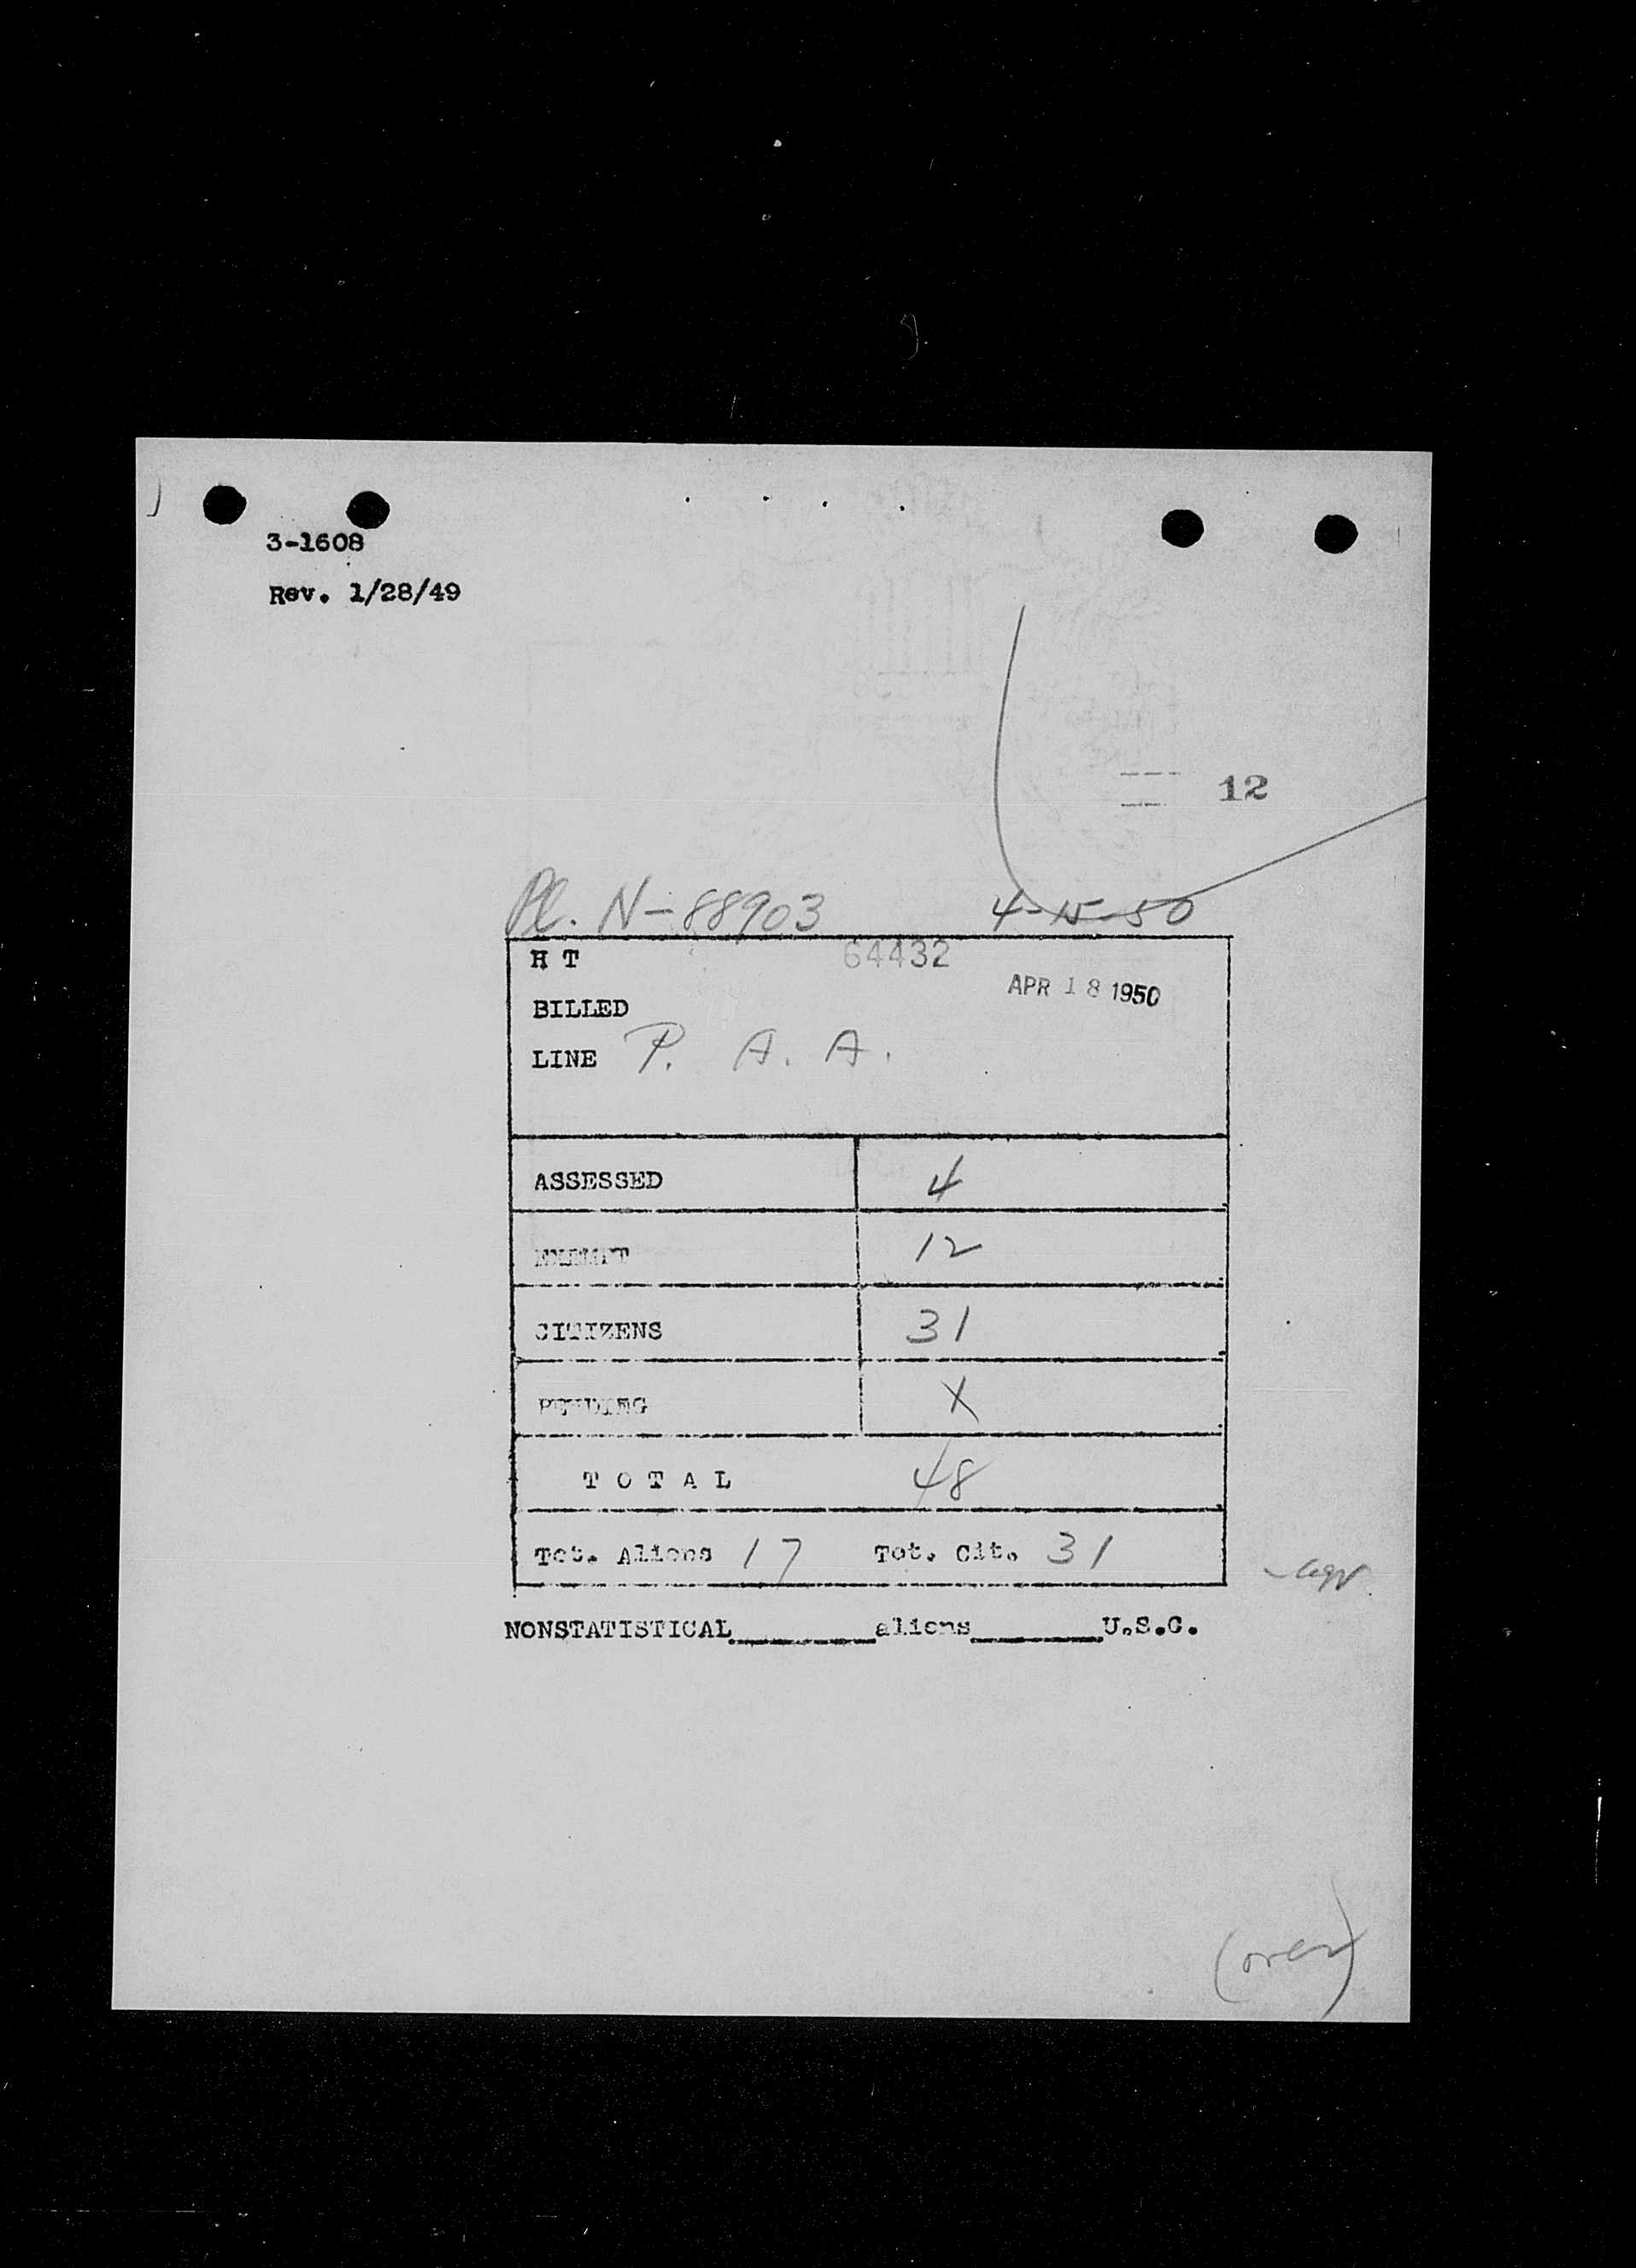 3-1608
Rev. 1/28/49
12
Pl. N-88903 4-15-50
H T 64432
APR 18 1950
BILLED
LINE P. A. A.
ASSESSED 4
EXEMPT 12
CITIZENS 31
PENDING X
T O T A L 48
Tot. Aliens 17 Tot. Cit. 31
NONSTATISTICAL________aliens________U.S.C.
(over)